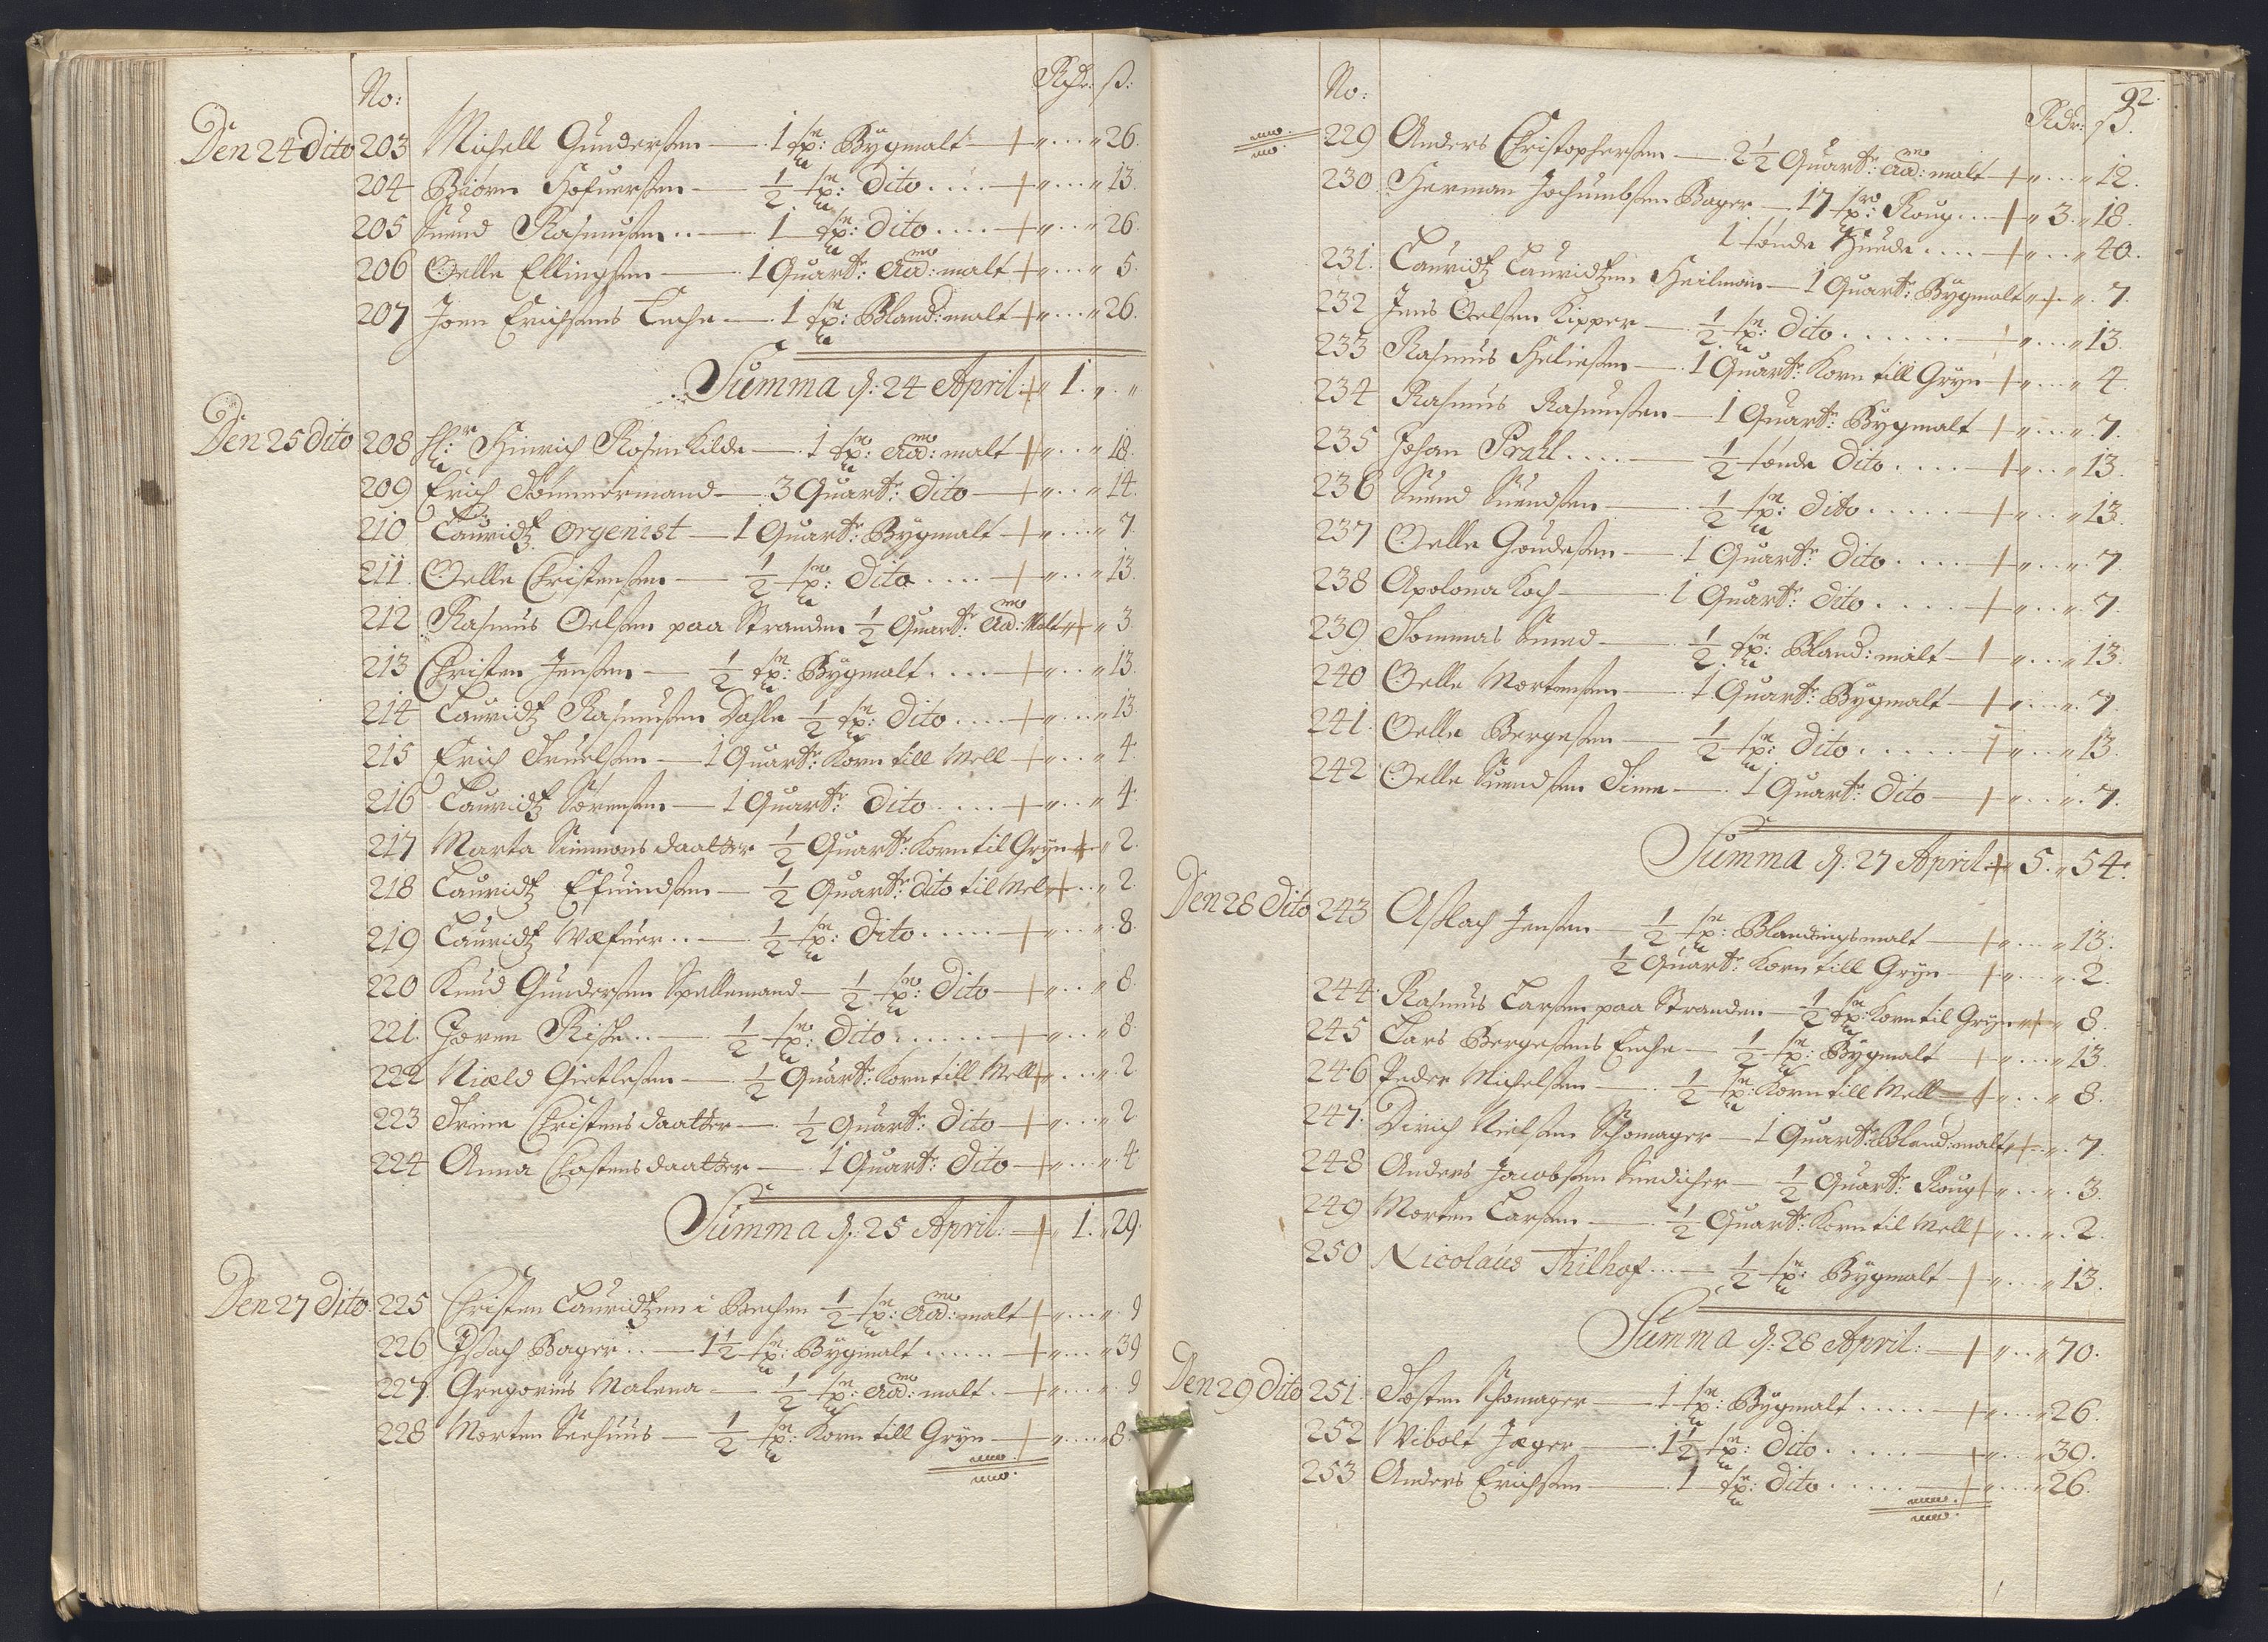 No: Rdr: ß:
Den 24 Dito 203 Michell Gundersen — 1 tp: Bÿgmalt — „ .... „ 26.
204 Biörn Hofuersen — ½ tp: Dito .... „ .... „ 13.
205 Suend Rasmusen .. — 1 tp: Dito .... „ ... „ 26.
206 Oelle Ellingsen — 1 Quart: Aad: malt „ .... „ 5.
207 Joen Erichsens Enche — 1 tp: Bland: malt „ ... „ 26.
Summa d: 24 April: „ 1. „ „
Den 25 Dito 208 Hl:r Hinrich Rosenkilde — 1 tp: Aad: malt „ ... „ 18.
209 Erich Tömmermand — 3 Quart: Dito — „ ... „ 14.
210 Lauridtz Orgenist — 1 Quart: Bÿgmalt — „ .... „ 7.
211. Oelle Christensen — ½ tp: Dito .... „ ... „ 13.
212 Rasmus Oelsen paa Stranden ½ Quart: Aad: Malt „ „ 3
213 Christen Jensen — ½ tp: Bÿgmalt .... „ ... „ 13.
214 Lauridtz Rasmusen Dahle ½ tp: Dito .... „ .... „ 13.
215 Erich Truelsen — 1 Quart: Korn till Mell „ ... „ 4.
216 Lauridtz Sörensen — 1 Quart: Dito .... „ ... „ 4.
217 Marta Simmons daatter ½ Quart: Korn til Grÿn „ 2.
218 Lauridtz Efuindsen — ½ Quart: Dito til Mel .. „ 2.
219 Lauridtz Wæfuer .. — ½ tp: Dito ..... „ .... „ 8.
220 Knud Gundersen Spellemand — ½ tp: Dito — „ ... „ 8.
221. Joren Riske .. — ½ tp: Dito ...... „ ... „ 8.
222 Niæls Gietlesen — ½ Quart: Korn till Mell „ .... „ 2
223 Trine Christens daatter — ½ Quart: Dito — „ .... „ 2
224 Anna Chastens daatter — 1 Quart: Dito — „ .... „ 4.
Summa d: 25 April: — „ 1. „ 29.
Den 27 Dito. 225 Christen Lauridtzen i Bechen ½ tp: Aad: malt „ .... „ 9
226 Isach Bager .. — 1½ tp: Bÿgmalt ...... „ .... „ 39
227. Gregorius Malena — ½ tp: Aad: malt. — „ .... „ 9
228 Morten Seehuus — ½ tp: Korn till Grÿn — „ .... „ 8.
92.
No: Rdr: ß.
229 Anders Christophersen — 2½ Quart: Aad: malt „ ... „ 12.
230. Herman Jochumbsen Bager — 17 tp: Roug ... „ 3. „ 18.
1 tönde Huede .... „ ... „ 40.
231. Lauridtz Lauridtzen Heilman — 1 Quart: Bÿgmalt „ „ 7.
232 Jens Oelsen Kipper — ½ tp: Dito ...... „ .... „ 13.
233 Rasmus Heliesen — 1 Quart: Korn till Grÿn „ .... „ 4.
234 Rasmus Rasmusen — 1 Quart: Bÿgmalt — „ .... „ 7.
235 Johan Prahl .... — ½ tönde Dito .... „ ... „ 13.
236 Suend Suendsen — ½ tp: Dito ..... „ ... „ 13.
237 Oelle Goudesen — 1 Quart: Dito .... „ .... „ 7.
238 Apolona Koch — 1 Quart: Dito .... „ .... „ 7.
239. Tommas Smed — ½ tp: Bland: malt — „ .... „ 13.
240 Oelle Mortensen — 1 Quart: Bÿgmalt — „ .... „ 7.
241. Oelle Bergesen — ½ tp: Dito ..... „ .... „ 13.
242 Oelle Suendsen Time — 1 Quart: Dito — „ .... „ 7.
Summa d: 27 April: „ 5. „ 54.
Den 28 Dito 243 Asslach Jensen — ½ tp: Blandingsmalt — „ .... „ 13.
½ Quart: Korn till Grÿn — „ .... „ 2.
244. Rasmus Larsen paa Stranden — ½ tp: Korn til Grÿn „ „ 8.
245 Lars Bergesens Enche — ½ tp: Bÿgmalt — „ .... „ 13.
246 Peder Michelsen — ½ tp: Korn till Mell — „ ... „ 8.
247. Dirich Nielsen Schomager — 1 Quart: Bland: malt „ „ 7.
248 Anders Jacobsen Snedicher — ½ Quart: Roug „ ... „ 3.
249 Morten Larsen — ½ Quart: Korn til Mell „ ... „ 2.
250 Nicolaus Thilhof ... — ½ tp: Bÿgmalt — „ .... „ 13.
Summa d: 28 April: — „ ... „ 70.
Den 29 Dito 251. Tosten Schomager — 1 tp: Bÿgmalt ..... „ .... „ 26.
252 Wibolt Jæger — 1½ tp: Dito ...... „ .... „ 39.
253 Anders Erichsen — 1 tp: Dito ..... „ .... „ 26.